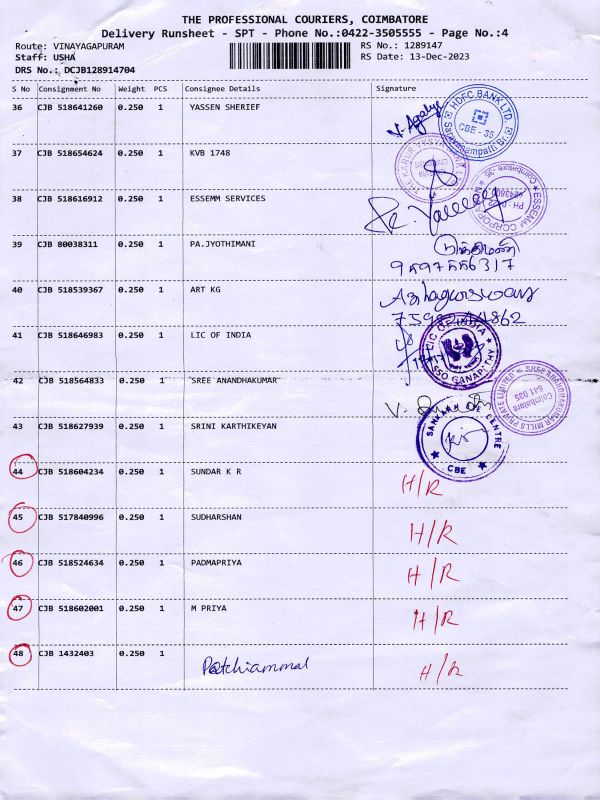 THE PROFESSIONAL COURIERS, COIMBATORE
Delivery Runsheet - SPT - Phone No.:0422-3505555 - Page No.:4
Route: VINAYAGAPURAM RS No.: 1289147
Staff: USHA RS Date: 13-Dec-2023
DRS No.: DCJB128914704
S No Consignment No Weight PCS Consignee Details Signature
36 CJB 518641260 0.250 1 YASSEN SHERIEF
HDFC BANK LTD. CBE - 35
37 CJB 518654624 0.250 1 KVB 1748
38 CJB 518616912 0.250 1 ESSEMM SERVICES
ESSEMM CORPORATION Coimbatore - 35
39 CJB 80038311 0.250 1 PA.JYOTHIMANI
40 CJB 518539367 0.250 1 ART KG
41 CJB 518646983 0.250 1 LIC OF INDIA
LIC OF INDIA SSO GANAPATHY
42 CJB 518564833 0.250 1 SREE ANANDHAKUMAR
SREE ANANDHAKUMAR MILLS PRIVATE LIMITED Coimbatore 641 035
43 CJB 518627939 0.250 1 SRINI KARTHIKEYAN
SANKARA EYE CENTRE CBE
44 CJB 518604234 0.250 1 SUNDAR K R H/R
45 CJB 517840996 0.250 1 SUDHARSHAN H/R
46 CJB 518524634 0.250 1 PADMAPRIYA H/R
47 CJB 518602001 0.250 1 M PRIYA H/R
48 CJB 1432403 0.250 1 Patchiammal H/R